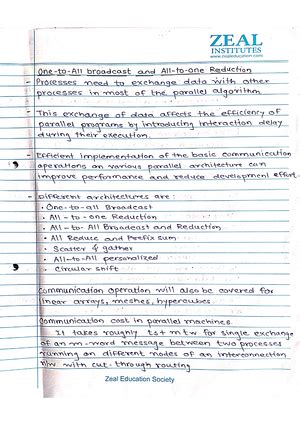 ZEAL
INSTITUTES
www.zealeducation.com
One-to-All broadcast and All-to-one Reduction
- Processes need to exchange data with other
processes in most of the parallel algorithm
- This exchange of data affects the efficiency of
parallel programs by introducing interaction delay
during their execution.
- Efficient implementation of the basic communication
operations on various parallel architecture can
improve performance and reduce development effort.
- Different architectures are :
• One-to-all Broadcast
• All-to-one Reduction
• All-to-All Broadcast and Reduction
• All Reduce and Prefix sum
• Scatter & gather
• All-to-All personalized
• Circular shift
Communication operation will also be covered for
linear arrays, meshes, hypercubes
Communication cost in parallel machines.
It takes roughly ts + mtw for single exchange
of an m-word message between two processes
running on different nodes of an interconnection
n/w with cut-through routing
Zeal Education Society